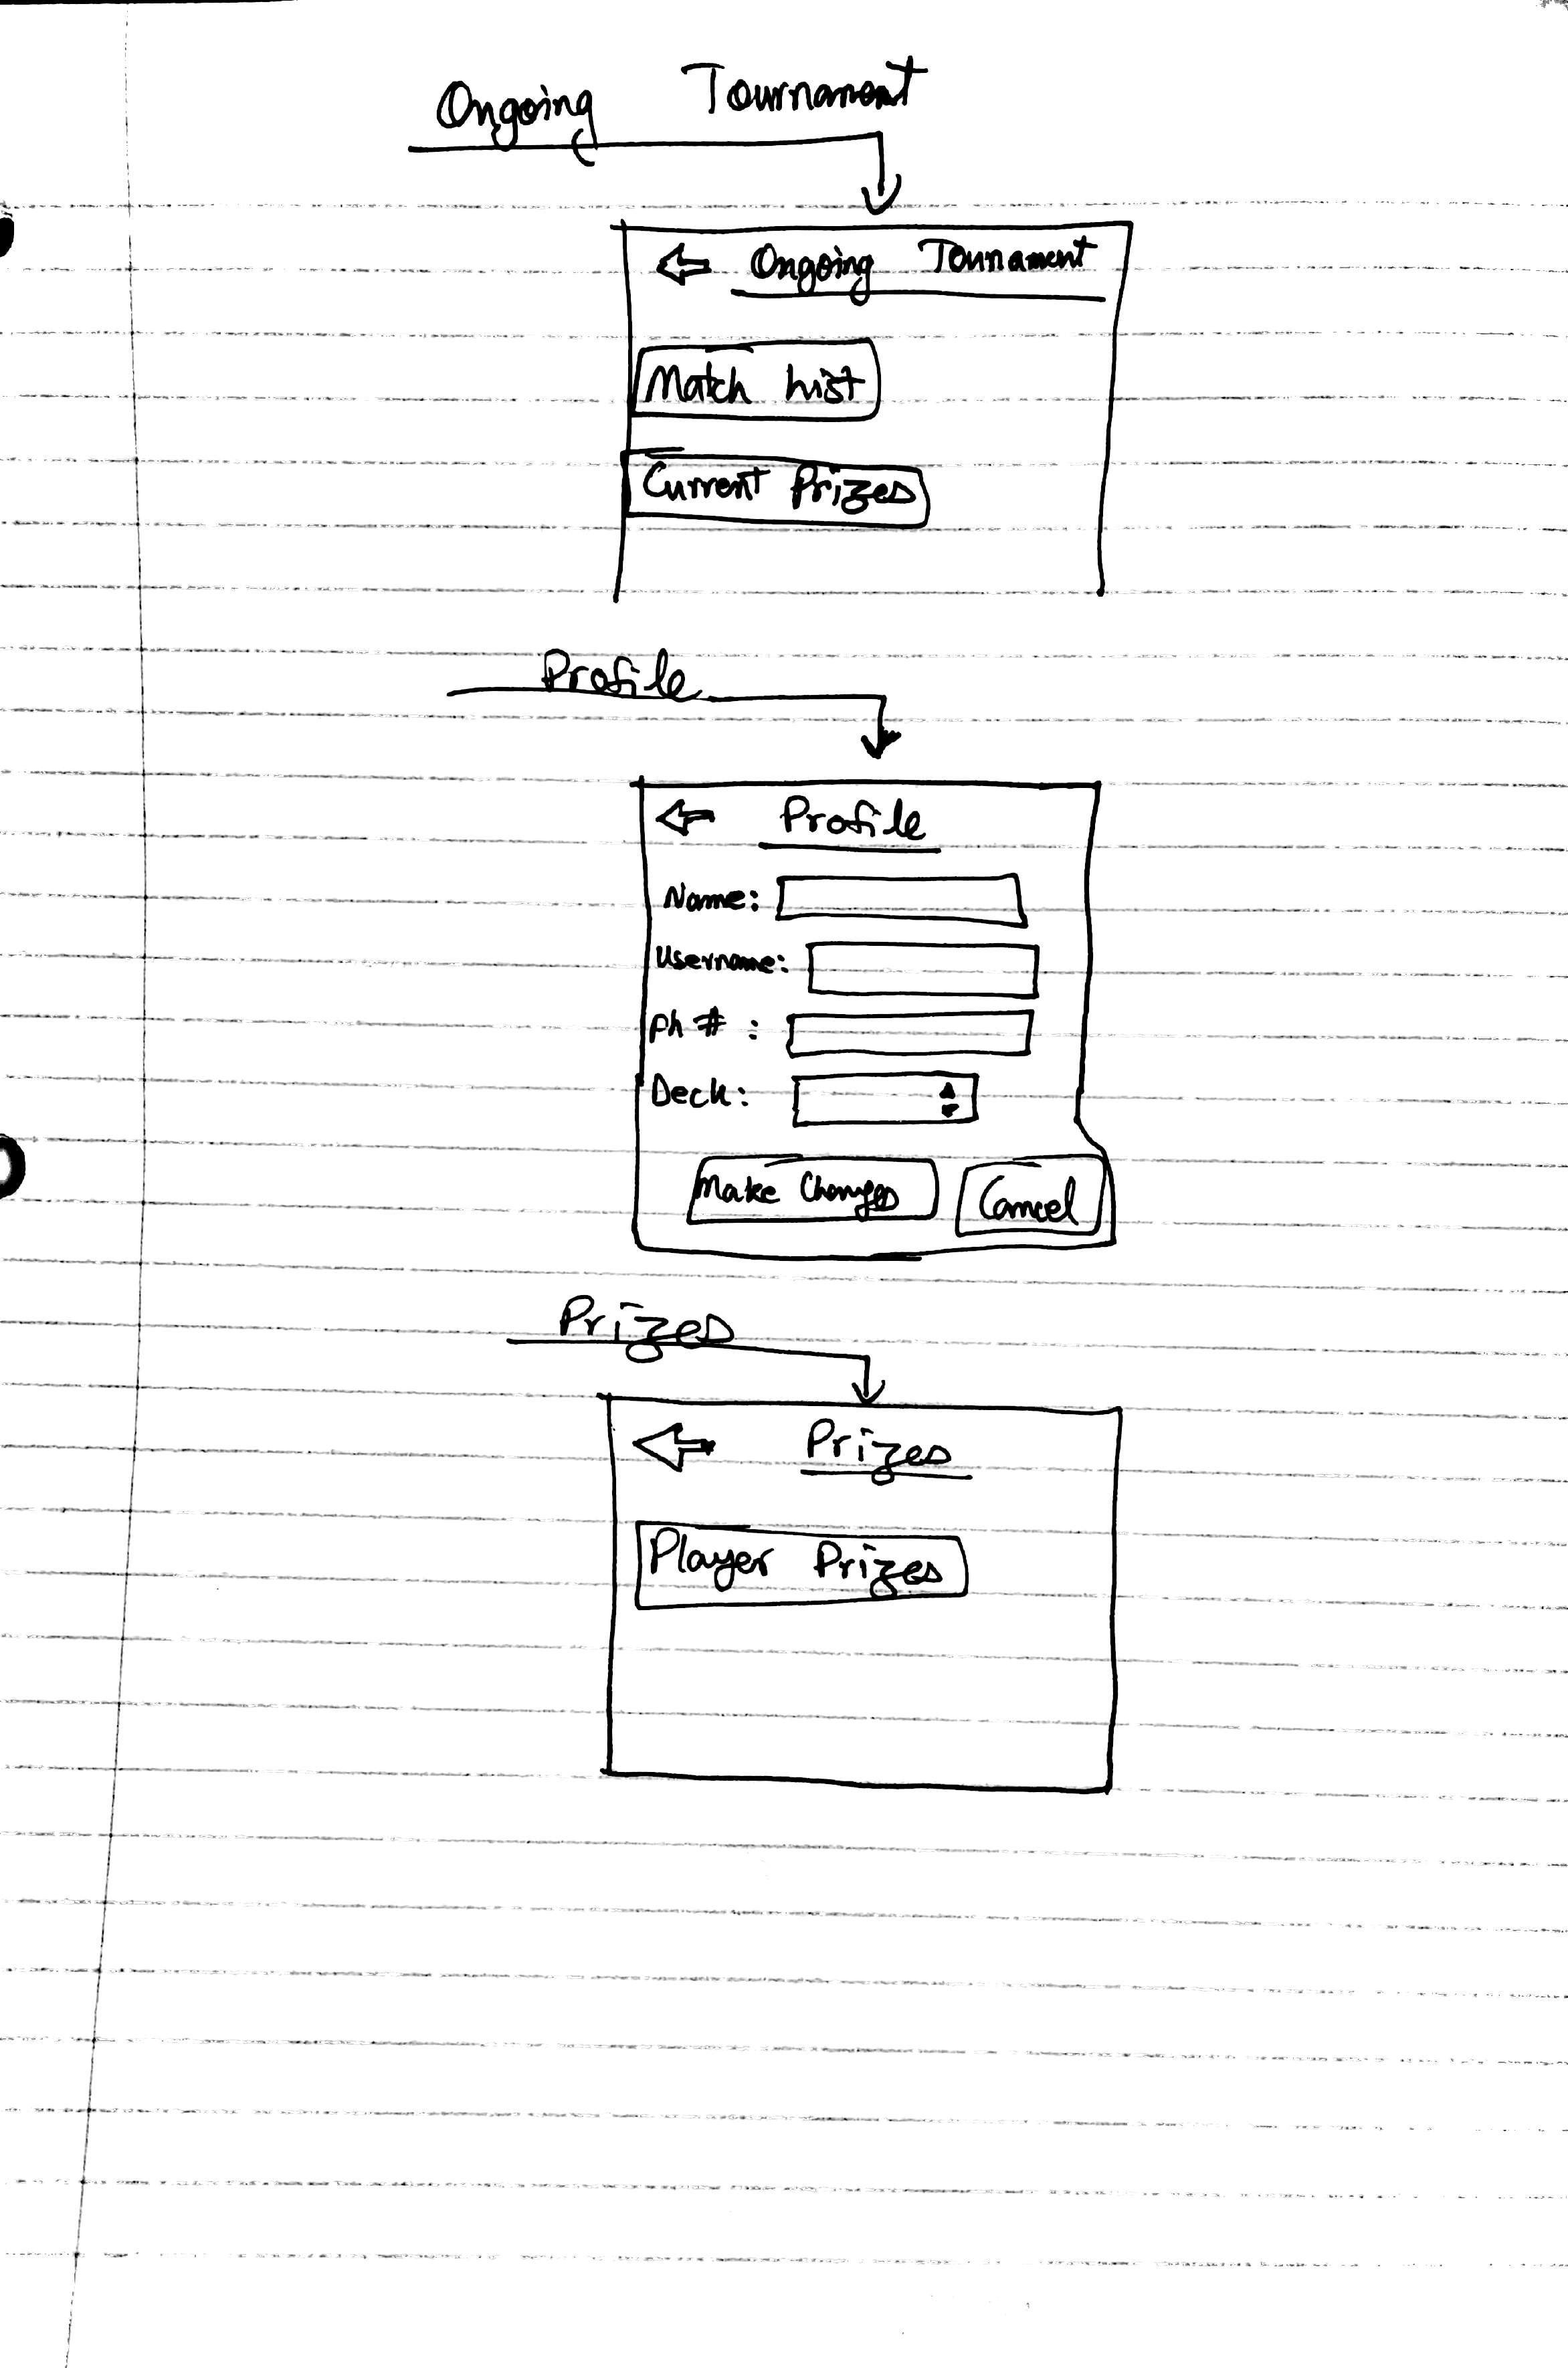 Ongoing Tournament
Ongoing Tounament
Match List
Current Prizes
Profile
Profile
Name:
Username:
Ph # :
Deck:
Make Changes
Cancel
Prizes
Prizes
Player Prizes